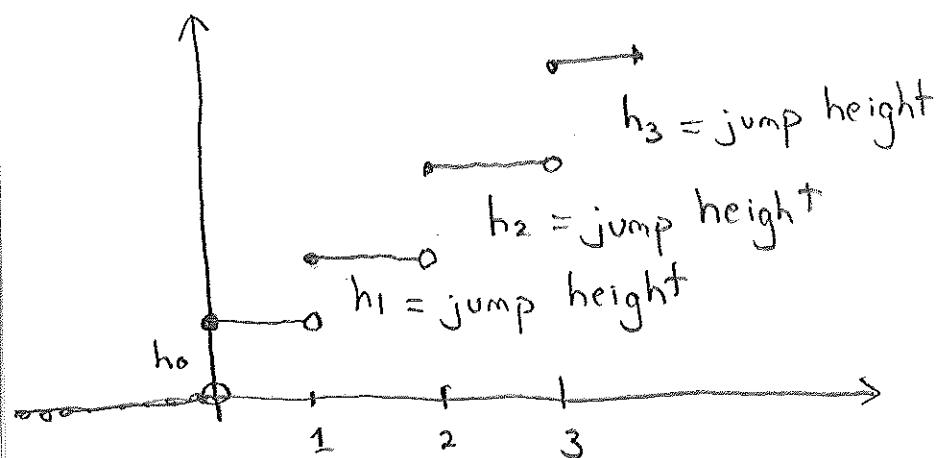 h3 = jump height
h2 = jump height
h1 = jump height
h0
1 2 3